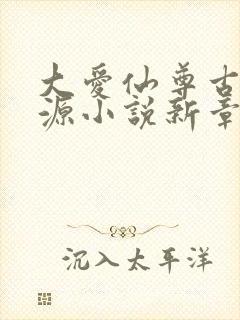 大愛仙尊古
源小說新章
沉入太平洋